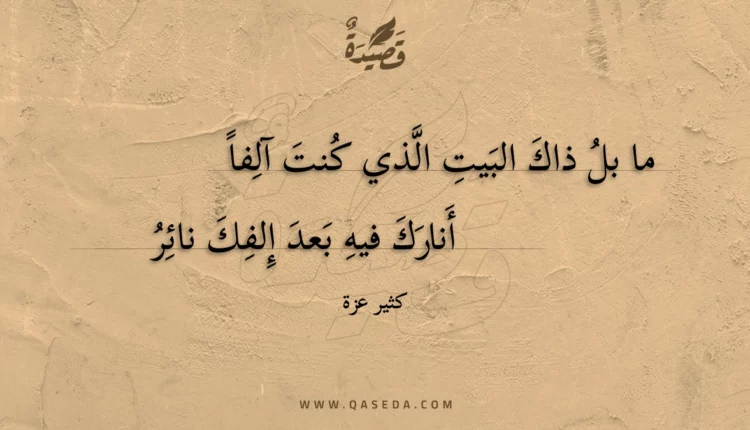 قَصِيدَةٌ
ما بلُ ذاكَ البَيتِ الَّذي كُنتَ آلِفاً
أَنارَكَ فيهِ بَعدَ إِلفِكَ نائِرُ
كثير عزة
WWW.QASEDA.COM